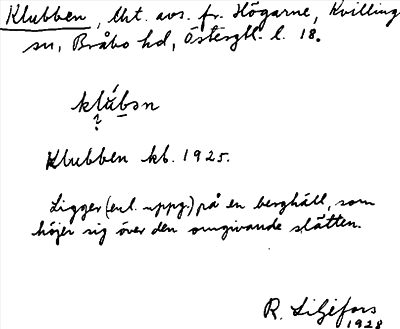 Klubben, lht. avs. fr. Högarne, Kvilling
sn, Bråbo hd, Östergtl. l. 18.
klúbən
?
Klubben kb. 1925.
Ligger (enl. uppg.) på en berghäll, som
höjer sig över den omgivande slätten.
R. Liljefors
1928